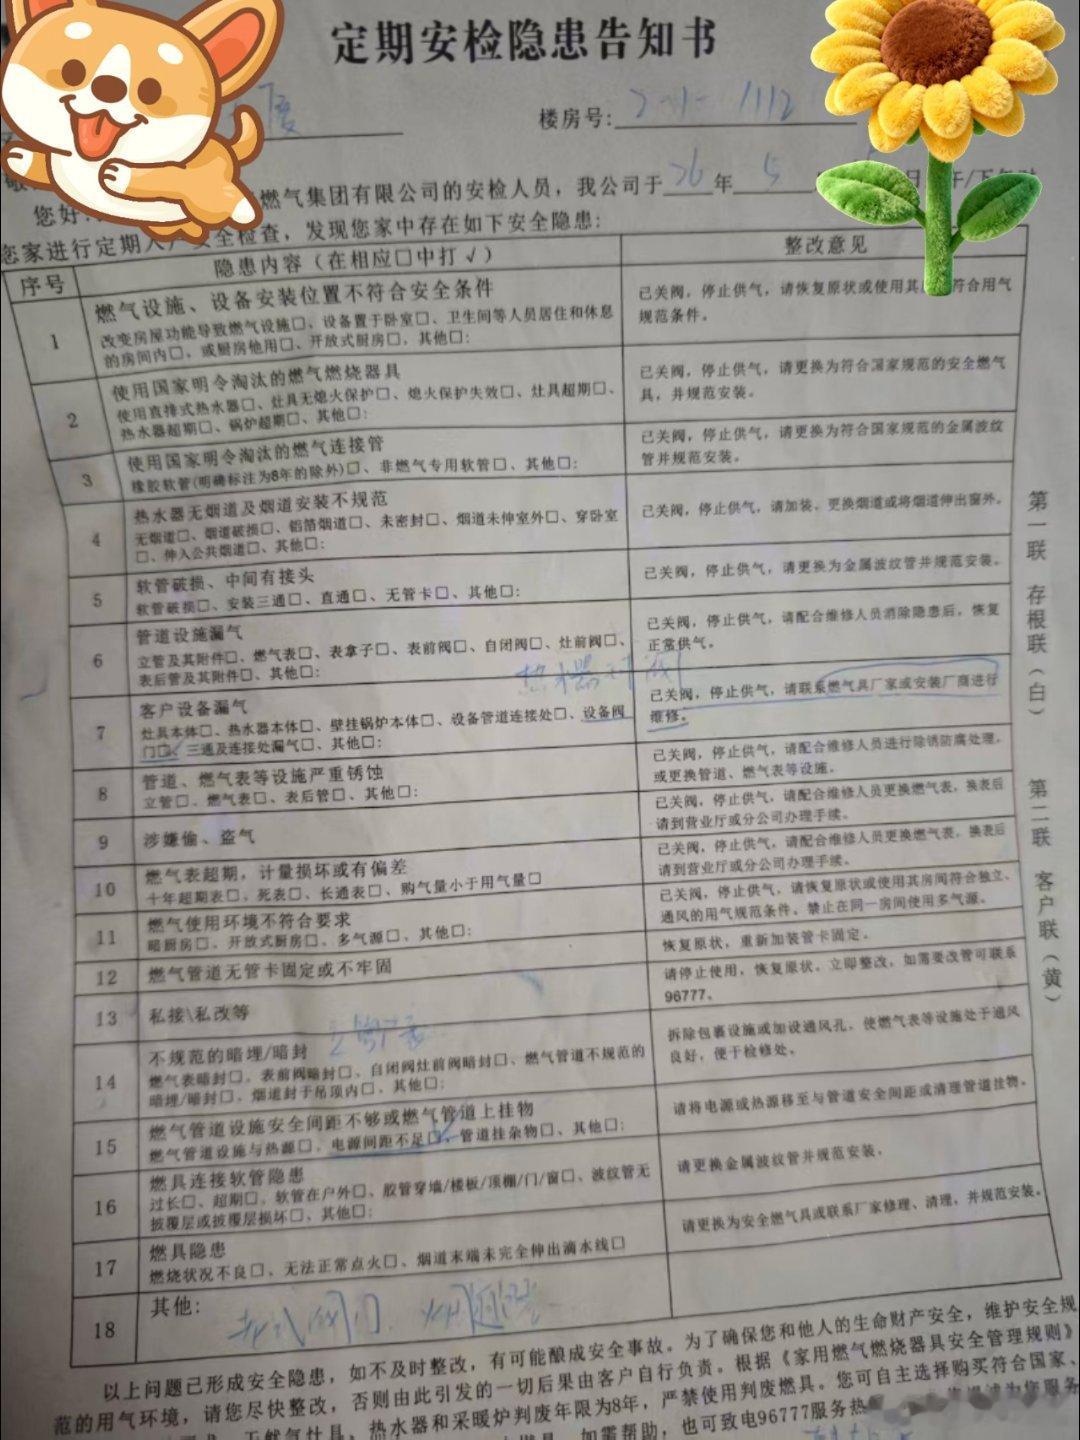 定期安检隐患告知书
楼房号:
燃气集团有限公司的安检人员，我公司于26年5
您好
您家进行定期入户安全检查，发现您家中存在如下安全隐患:
序号 隐患内容（在相应□中打√） 整改意见
1 燃气设施、设备安装位置不符合安全条件
改变房屋功能导致燃气设施□、设备置于卧室□、卫生间等人员居住和休息
的房间内□，或厨房他用□、开放式厨房□，其他□:
已关阀，停止供气，请恢复原状或使用其 符合用气
规范条件。
2 使用国家明令淘汰的燃气燃烧器具
使用直排式热水器□、灶具无熄火保护□、熄火保护失效□、灶具超期□、
热水器超期□、锅炉超期□、其他□:
已关阀，停止供气，请更换为符合国家规范的安全燃气
具，并规范安装。
3 使用国家明令淘汰的燃气连接管
橡胶软管(明确标注为8年的除外)□、非燃气专用软管□、其他□:
已关阀，停止供气，请更换为符合国家规范的金属波纹
管并规范安装。
4 热水器无烟道及烟道安装不规范
无烟道□、烟道破损□、铝箔烟道□、未密封□、烟道未伸室外□、穿卧室
□、伸入公共烟道□、其他□:
已关阀，停止供气，请加装、更换烟道或将烟道伸出窗外。
5 软管破损、中间有接头
软管破损□、安装三通□、直通□、无管卡□、其他□:
已关阀，停止供气，请更换为金属波纹管并规范安装。
6 管道设施漏气
立管及其附件□、燃气表□、表拿子□、表前阀□、自闭阀□、灶前阀□、
表后管及其附件□、其他□:
已关阀，停止供气，请配合维修人员消除隐患后，恢复
正常供气。
热水器
7 客户设备漏气
灶具本体□、热水器本体□、壁挂锅炉本体□、设备管道连接处□、设备阀
门☑、三通及连接处漏气□、其他□:
已关阀，停止供气，请联系燃气具厂家或安装厂商进行
维修。
8 管道、燃气表等设施严重锈蚀
立管□、燃气表□、表后管□、其他□:
已关阀，停止供气，请配合维修人员进行除锈防腐处理，
或更换管道、燃气表等设施。
9 涉嫌偷、盗气
已关阀，停止供气，请配合维修人员更换燃气表，换表后
请到营业厅或分公司办理手续。
10 燃气表超期，计量损坏或有偏差
十年超期表□，死表□、长通表□、购气量小于用气量□
已关阀，停止供气，请配合维修人员更换燃气表，换表后
请到营业厅或分公司办理手续。
11 燃气使用环境不符合要求
暗厨房□、开放式厨房□、多气源□、其他□:
已关阀，停止供气，请恢复原状或使用其房间符合独立、
通风的用气规范条件。禁止在同一房间使用多气源。
12 燃气管道无管卡固定或不牢固
恢复原状，重新加装管卡固定。
13 私接\私改等
请停止使用，恢复原状。立即整改，如需要改管可联系
96777。
14 不规范的暗埋/暗封
燃气表暗封□、表前阀暗封□、自闭阀灶前阀暗封□、燃气管道不规范的
暗埋/暗封□、烟道封于吊顶内□、其他□:
拆除包裹设施或加设通风孔，使燃气表等设施处于通风
良好，便于检修处。
15 燃气管道设施安全间距不够或燃气管道上挂物
燃气管道设施与热源□、电源间距不足☑、管道挂杂物□、其他□:
请将电源或热源移至与管道安全间距或清理管道挂物。
16 燃具连接软管隐患
过长□、超期□、软管在户外□、胶管穿墙/楼板/顶棚/门/窗□、波纹管无
披覆层或披覆层损坏□、其他□:
请更换金属波纹管并规范安装。
17 燃具隐患
燃烧状况不良□、无法正常点火□、烟道末端未完全伸出滴水线□
请更换为安全燃气具或联系厂家修理、清理，并规范安装。
18 其他:
老式阀门
第一联 存根联（白） 第二联 客户联（黄）
以上问题已形成安全隐患，如不及时整改，有可能酿成安全事故。为了确保您和他人的生命财产安全，维护安全规
范的用气环境，请您尽快整改，否则由此引发的一切后果由客户自行负责。根据《家用燃气燃烧器具安全管理规则》
天然气灶具，热水器和采暖炉判废年限为8年，严禁使用判废燃具。您可自主选择购买符合国家、
如需帮助，也可致电96777服务热 为您服务